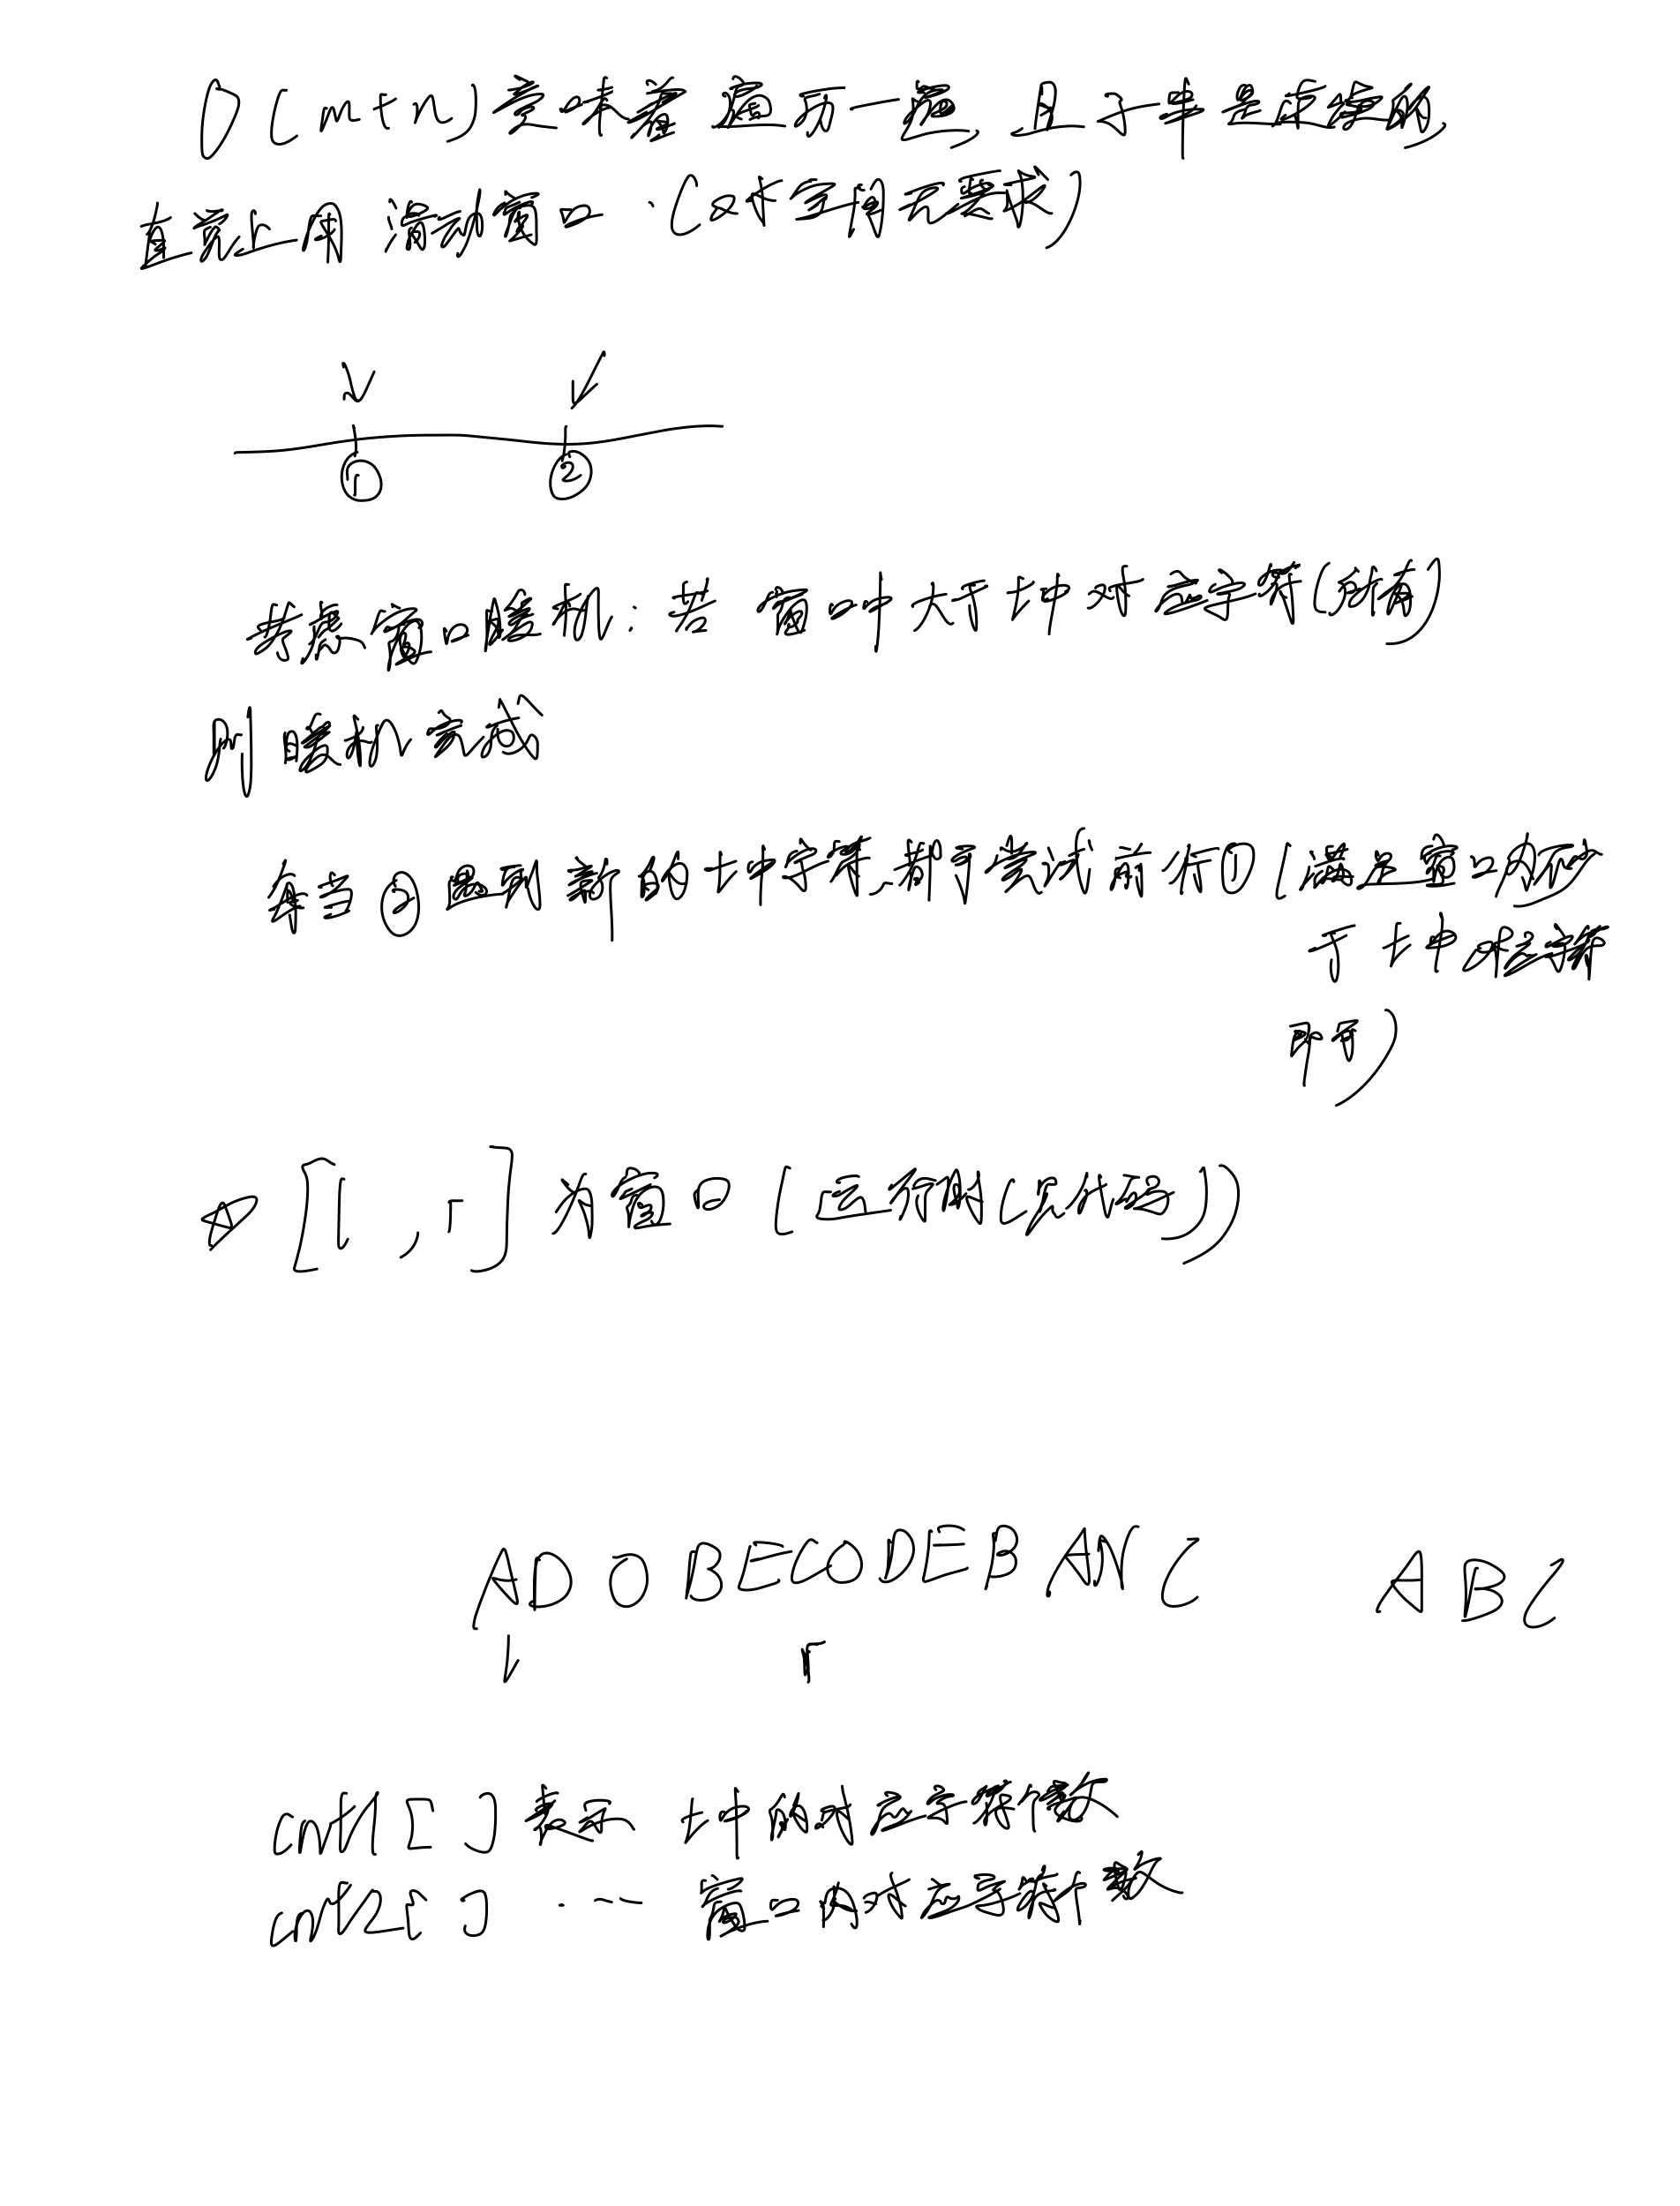 O(m+n)意味着遍历一遍,且子串是连续的,
直觉上用 滑动窗口.(对空间无要求)
① ②
考虑窗口暖机: 若 窗口中大于t中对应字符(所有)
则暖机完成
每当②遇到新的t中字符,都可尝试前行①(满足窗口内仍
于t中对应字符
即可)
[l, r]为窗口(运行时(见代码))
ADOBECODEBANC ABC
l r
cnt1[ ]表示 t中的对应字符个数
cnt2[ ] ... 窗口内对应字符个数